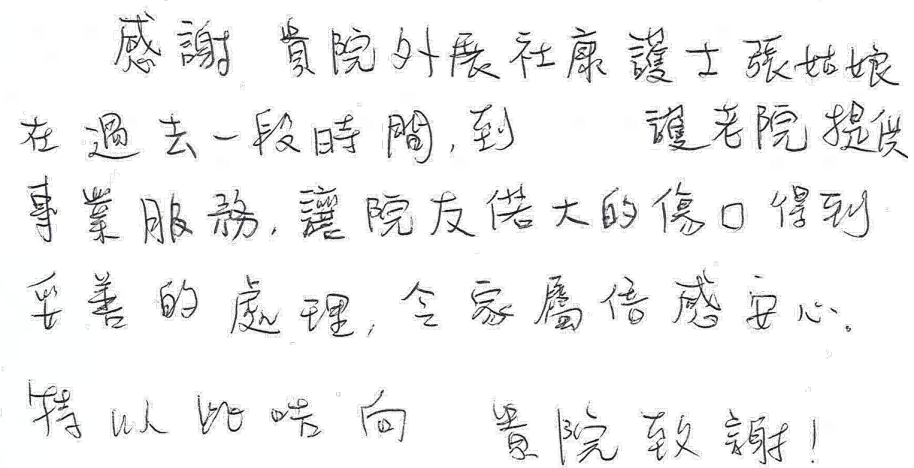 感謝 貴院外展社康護士張姑娘
在過去一段時間,到 護老院提供
專業服務,讓院友偌大的傷口得到
妥善的處理,令家屬倍感安心。
特以此咭向 貴院致謝!